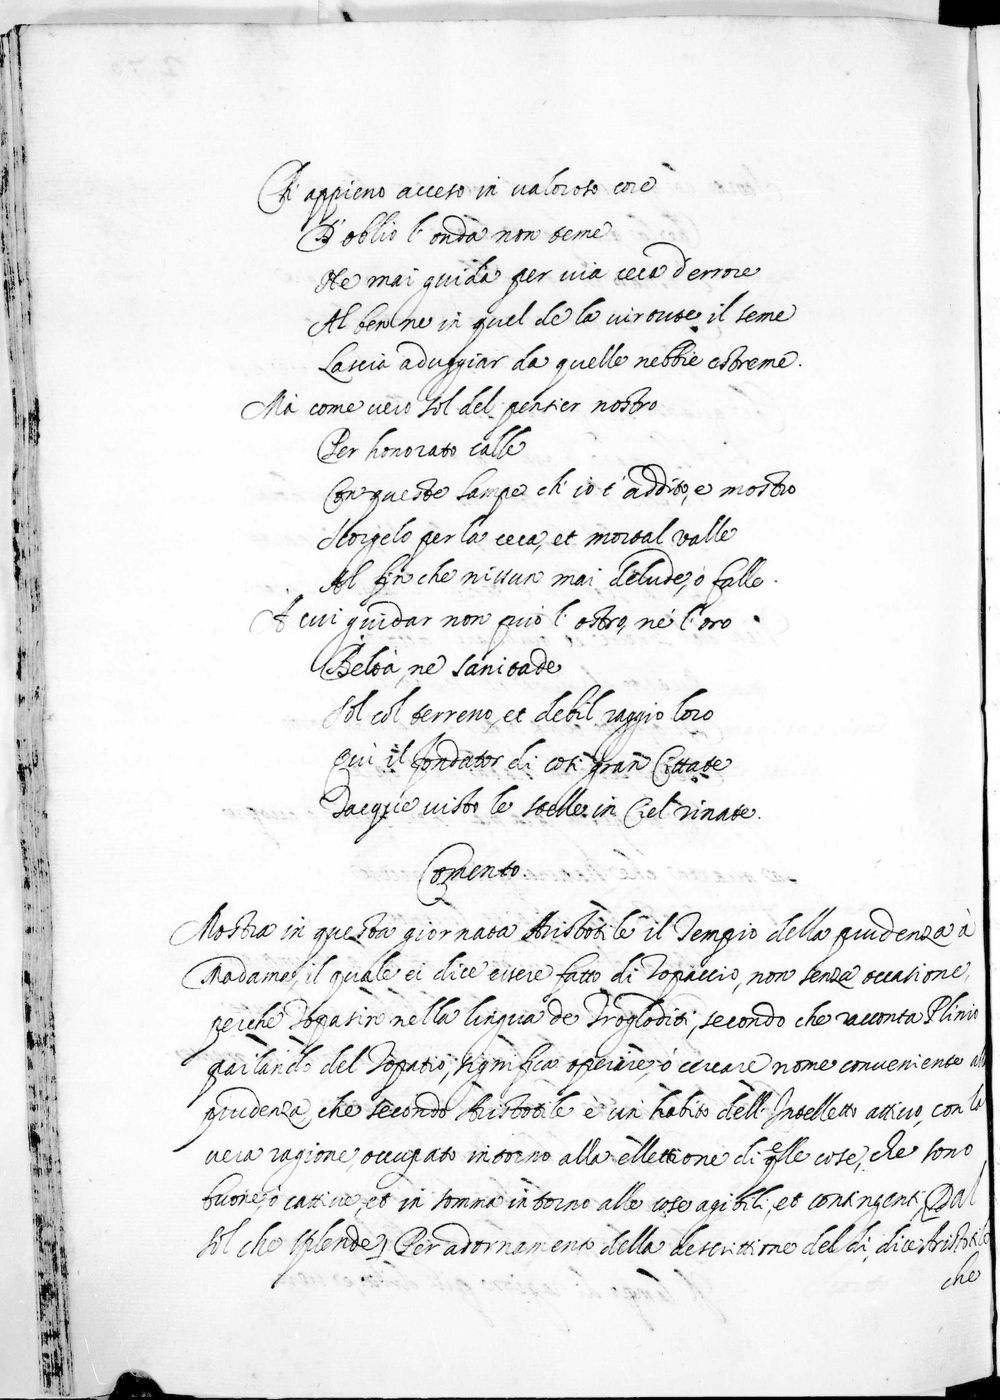 Ch' appieno acceso in valoroso core
D' oblio l' onda non teme
Ne mai guida per via ceca d'errore
Al ben ne in quel de la virtute il seme
Lascia aduggiar da quelle nebbie estreme.
Ma come vero sol del pensier nostro
Per honorato calle
Con queste lampe ch' io t' addito, e mostro
Scorgelo per la ceca, et mortal valle
Al fin che nissun mai delude, ò falle.
A cui guidar non può l' ostro, né l' oro
Beltà, ne sanitade
Sol col terreno, et debil raggio loro
Qui il fondator di così gran Cittate
Tacque visto le stelle in Ciel rinate.
Comento.
Mostra in questa giornata Aristotile il Tempio della prudenza à
Madama, il quale ei dice essere fatto di Topaccio, non senza occasione,
perche Topasin nella lingua de Trogloditi, secondo che racconta Plinio
parlando del Topatio, significa operare, ó cercare nome conveniente alla
prudenza, che secondo Aristotile è un habito dell' Intelletto attivo, con la
vera ragione, occupato intorno alla ellettione di quelle cose, che sono
buone, ò cattive, et in somma intorno alle cose agibili, et contingenti, Dal
sol che splende) Per adornamento della descrittione del dì, dice Aristotile
che